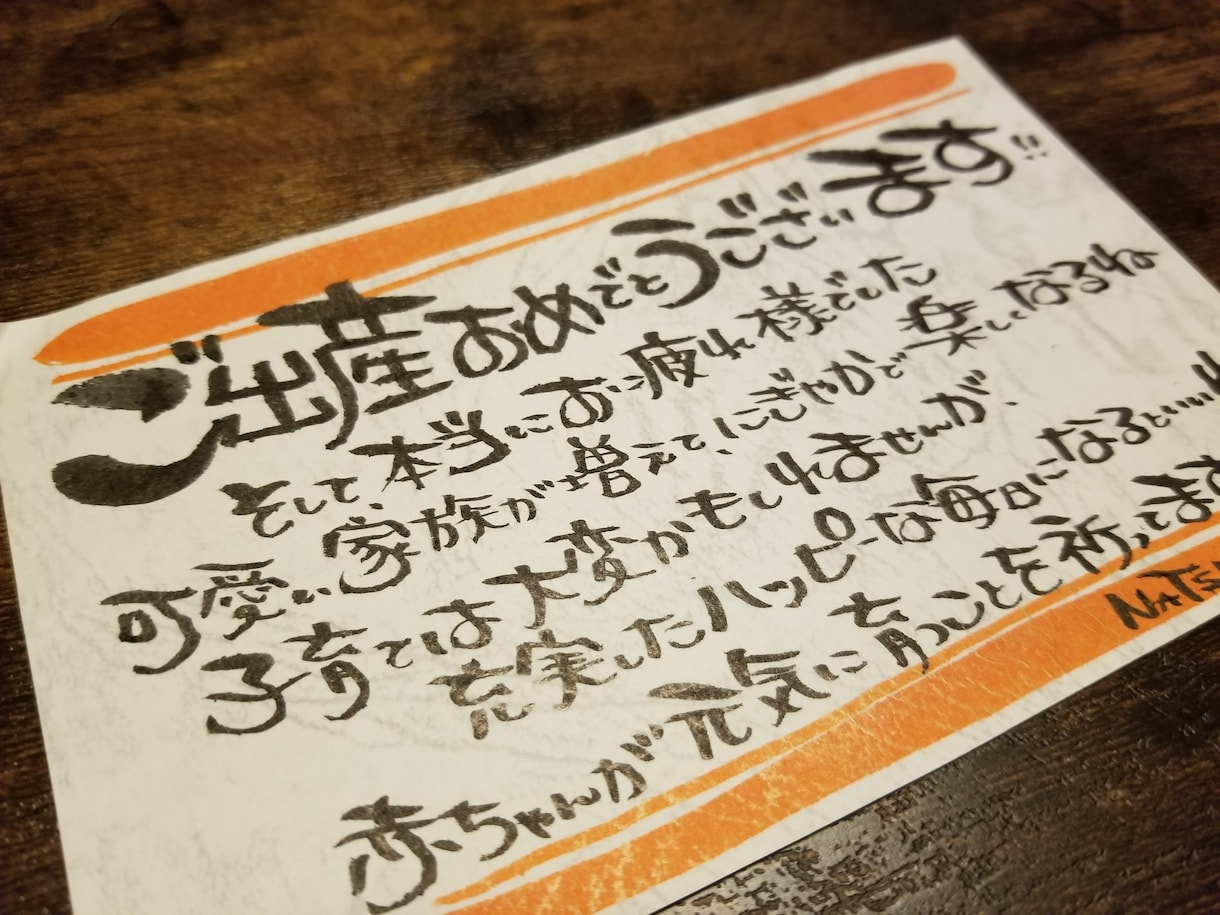 ご出産おめでとうございます
そして、本当にお疲れ様でした
可愛い家族が増えて、にぎやかで楽しくなるね
子育ては大変かもしれませんが、
充実したハッピーな毎日になるといい
赤ちゃんが元気に育つことを祈ってます